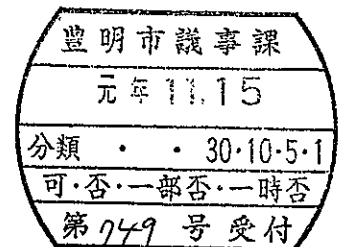 豊明市議事課
元年11.15
分類 ・ ・ 30・10・5・1
可・否・一部否・一時否
第749号受付